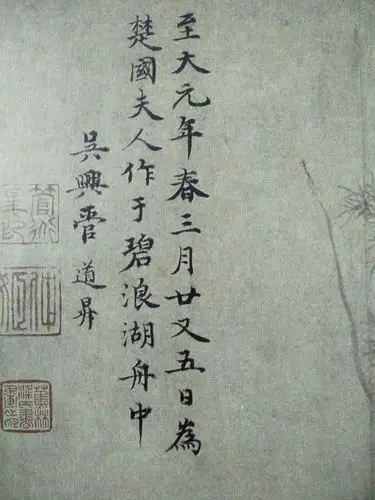 至大元年春三月廿又五日為
楚國夫人作于碧浪湖舟中
吳興管道昇
仲姬